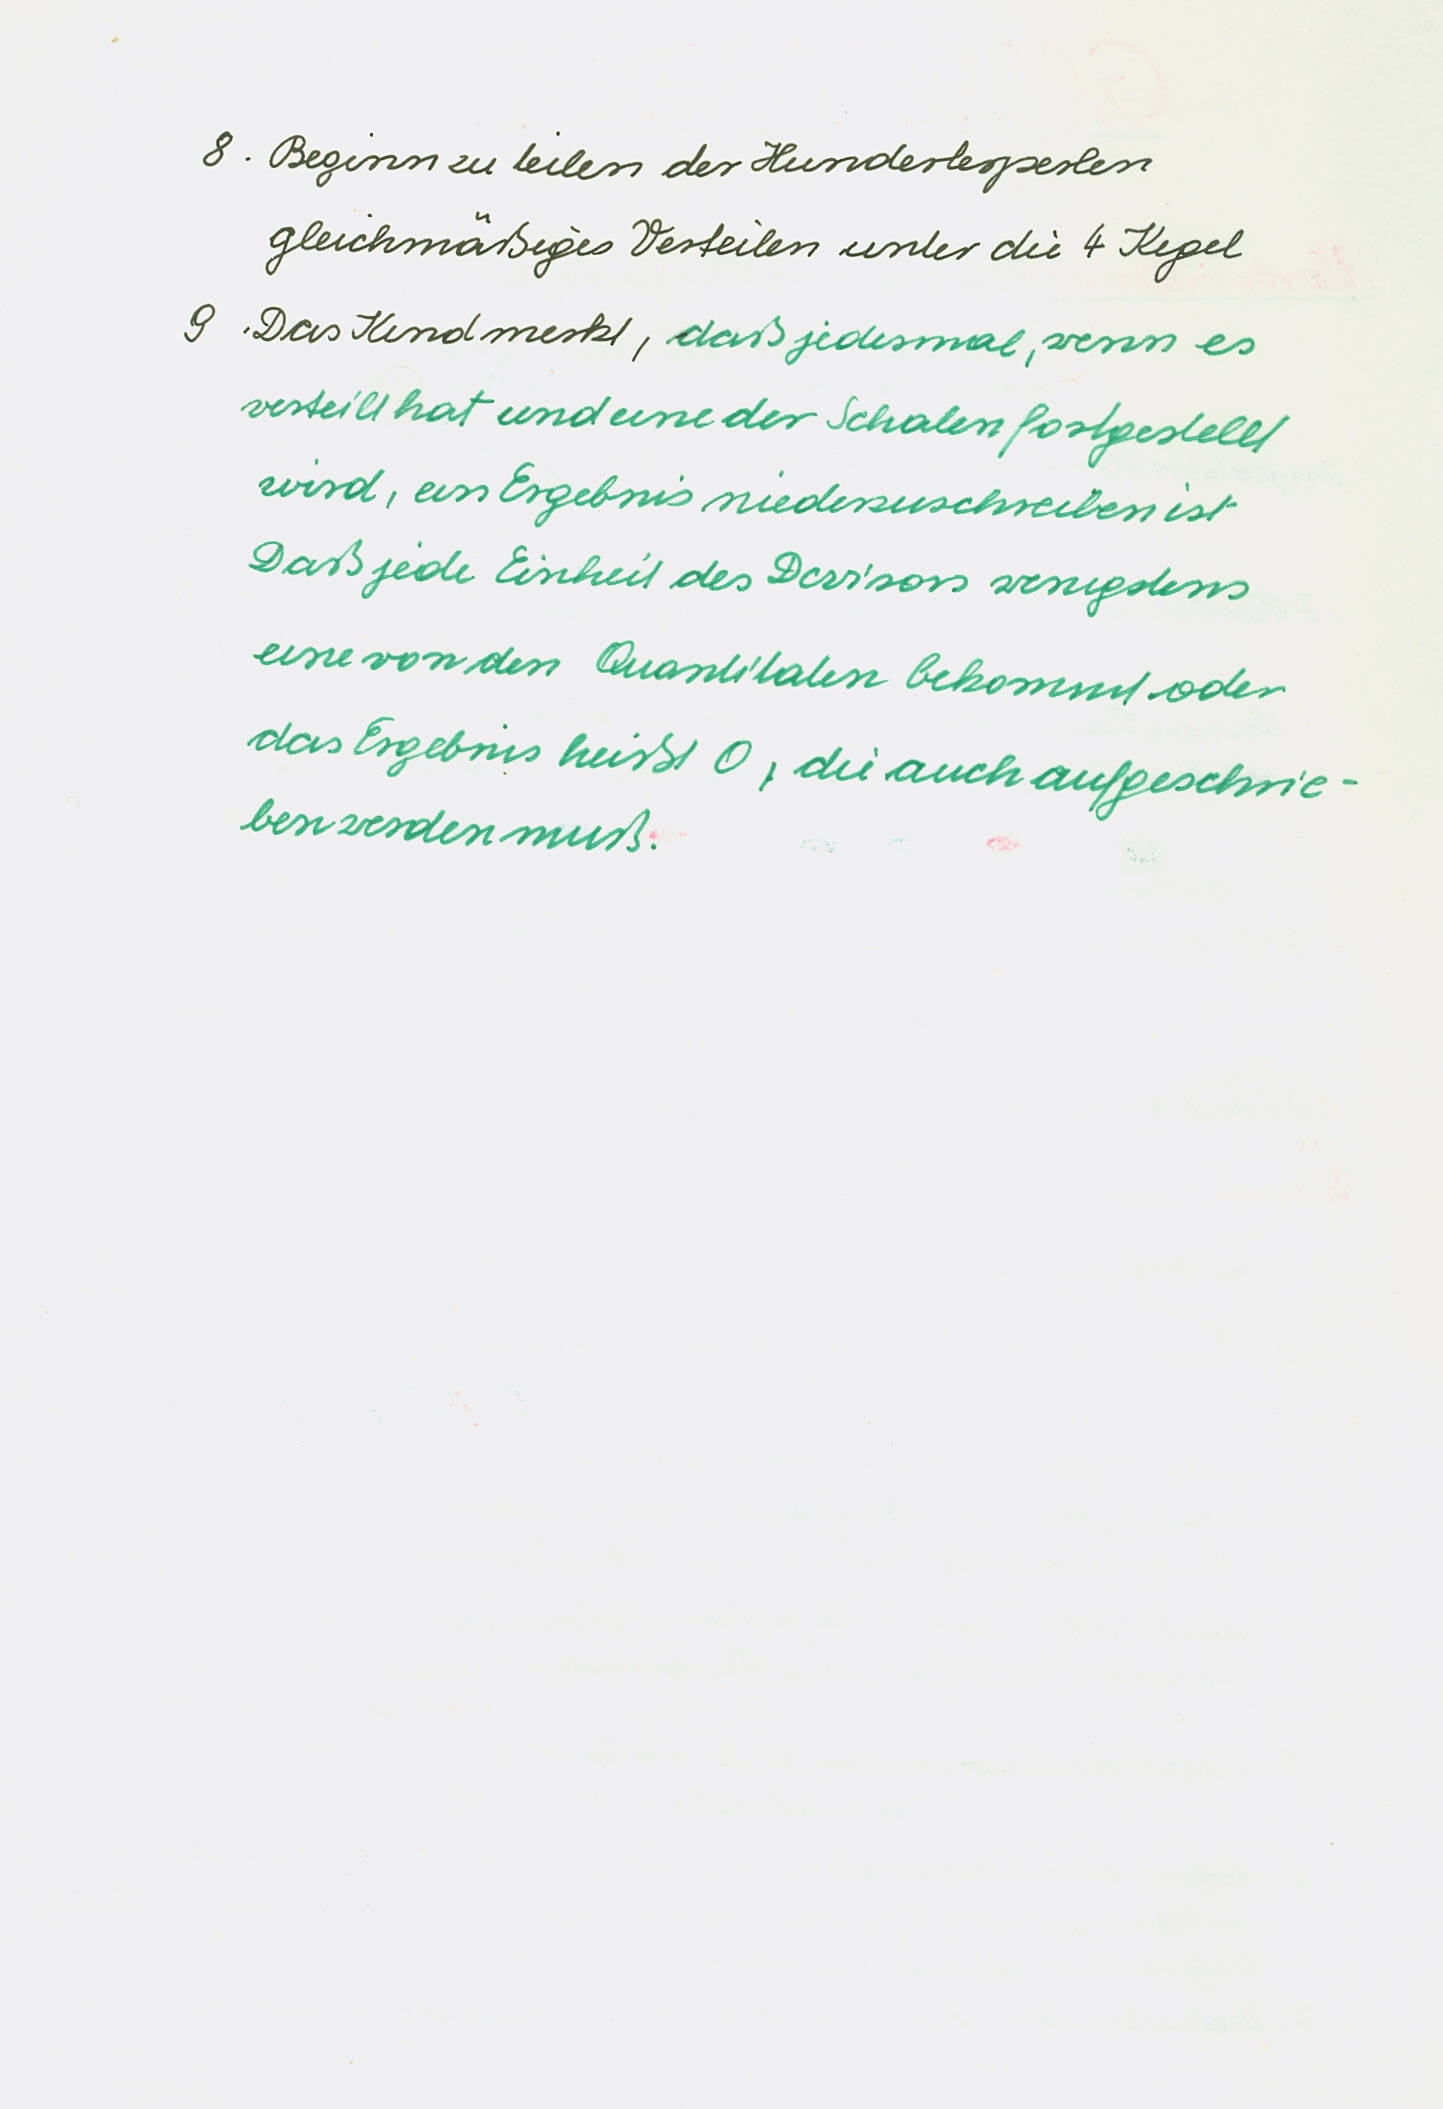 8. Beginn zu teilen der Hunderterperlen
gleichmäßiges Verteilen unter die 4 Kegel
9. Das Kind merkt, daß jedesmal, wenn es
verteilt hat und eine der Schalen fortgestellt
wird, ein Ergebnis niederzuschreiben ist
Daß jede Einheit des Divisors wenigstens
eine von den Quantitaten bekommt oder
das Ergebnis heißt 0, die auch aufgeschrie-
ben werden muß.